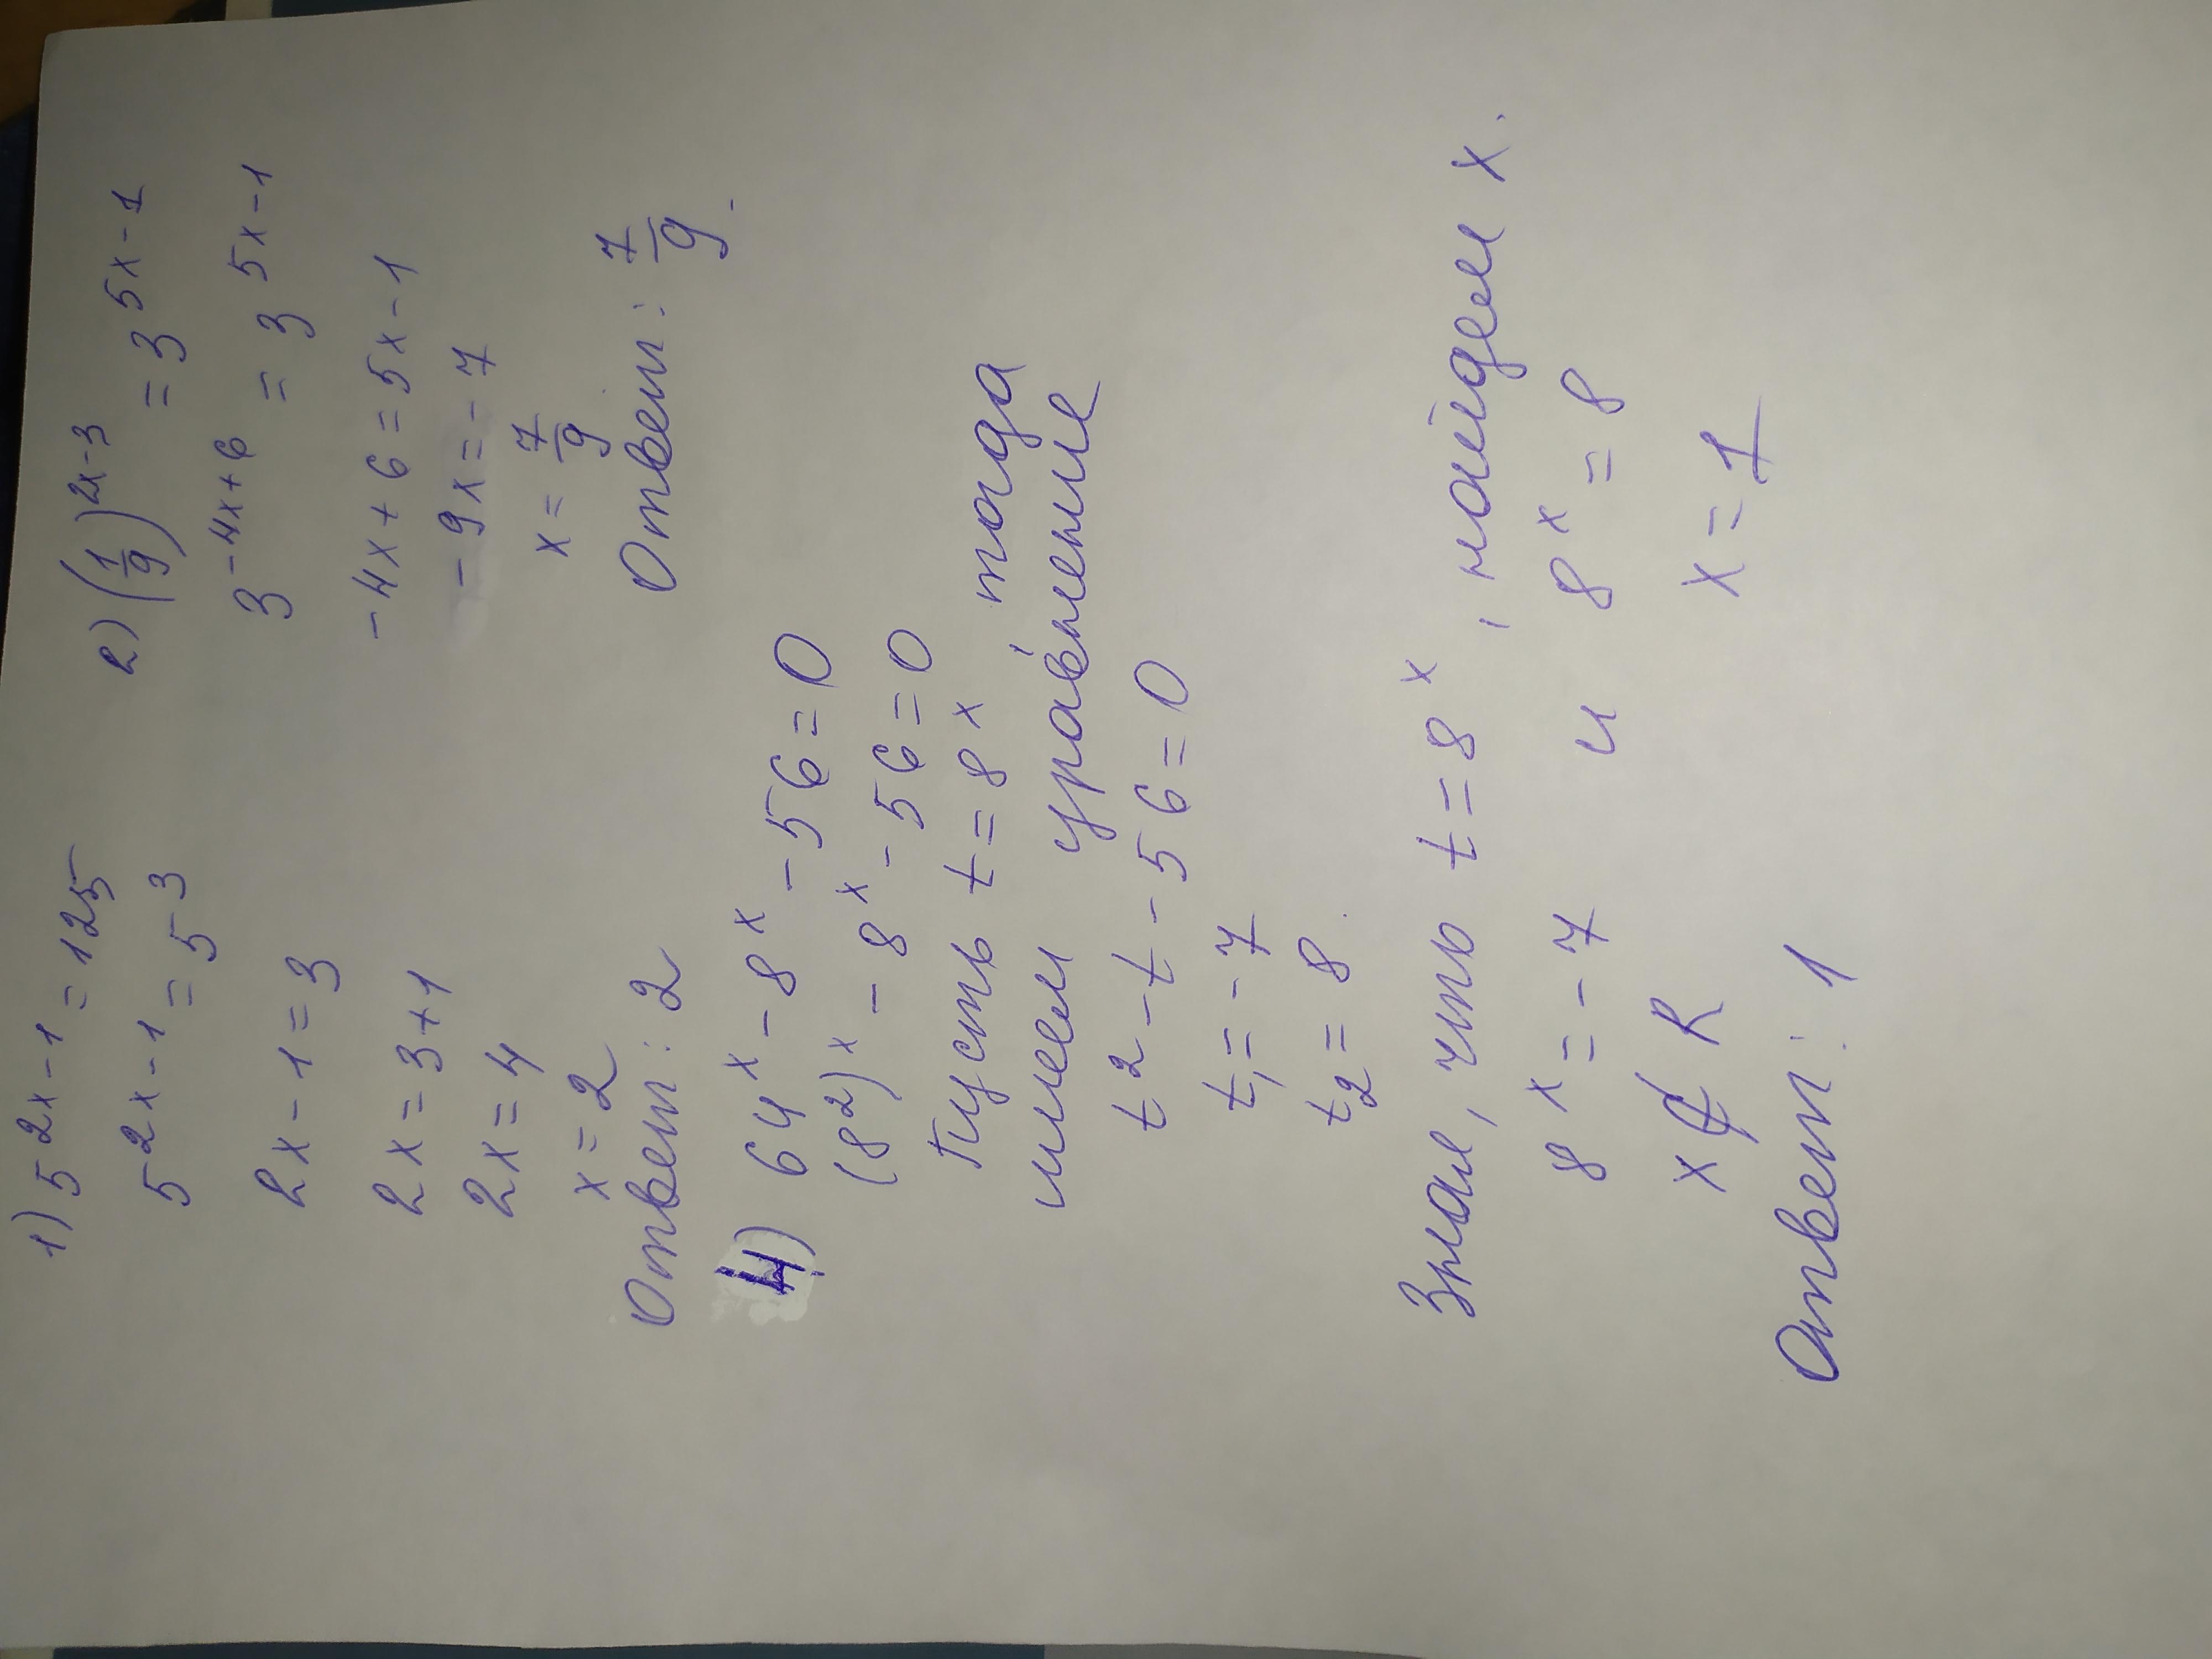 1) 5^{2x-1} = 125
5^{2x-1} = 5^3
2x - 1 = 3
2x = 3 + 1
2x = 4
x = 2
Ответ: 2
2) (1/9)^{2x-3} = 3^{5x-1}
3^{-4x+6} = 3^{5x-1}
-4x + 6 = 5x - 1
-9x = -7
x = 7/9
Ответ: 7/9.
4) 64^x - 8^x - 56 = 0
(8^2)^x - 8^x - 56 = 0
Пусть t = 8^x тогда
имеем уравнение
t^2 - t - 56 = 0
t_1 = -7
t_2 = 8.
Зная, что t = 8^x, найдем x.
8^x = -7 и 8^x = 8
x ∉ R x = 1
Ответ: 1